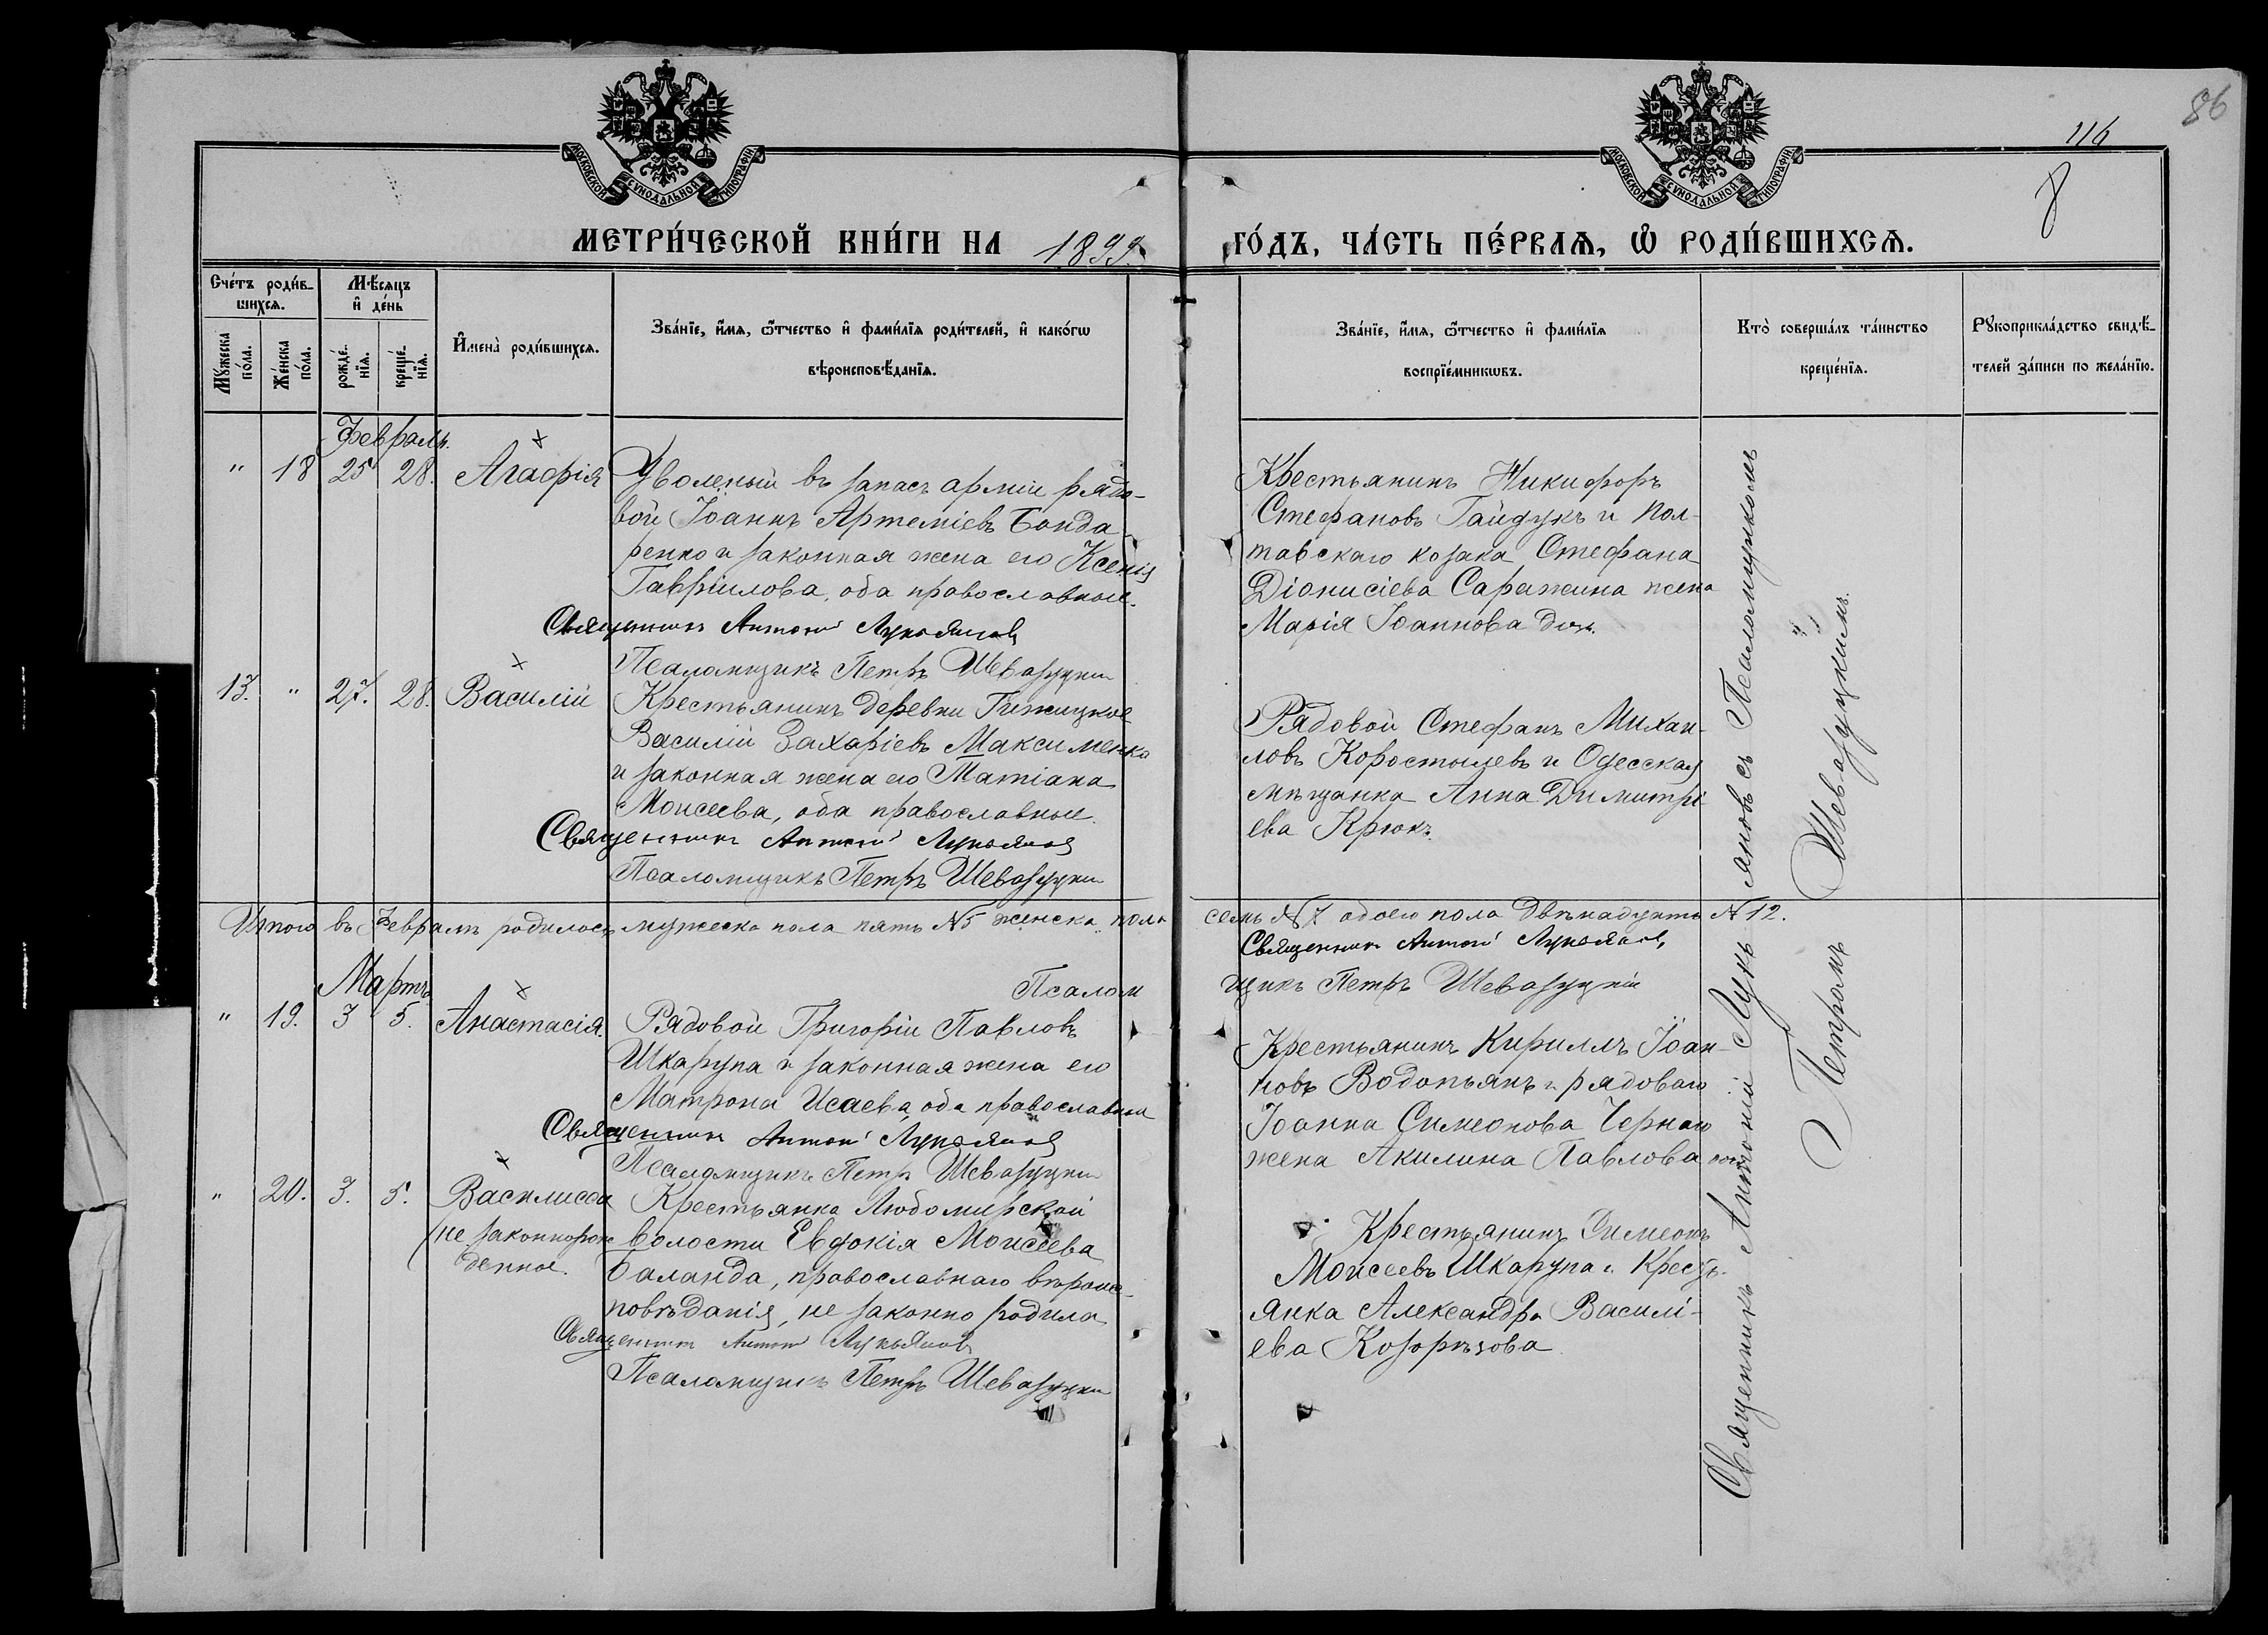 86
116
8
МОСКОВСКОЙ СѴНОДАЛЬНОЙ ТИПОГРАФІИ.
МОСКОВСКОЙ СѴНОДАЛЬНОЙ ТИПОГРАФІИ.
МЕТРИ́ЧЕСКОЙ КНИ́ГИ НА 1899
ГО́ДЪ, ЧА́СТЬ ПЕ́РВАѦ, Ѡ РОДИ́ВШИХСѦ.
Сче́тъ роди́в-
шихсѧ.
Мꙋ́жеска
по́ла.
Же́нска
по́ла.
Мѣ́сѧцъ
и҆ де́нь
рожде́-
нїѧ.
креще́-
нїѧ.
И҆мена̀ роди́вшихсѧ.
Зва́нїе, и҆́мѧ, ѻ҆́тчество и҆ фами́лїѧ роди́телей, и҆ како́гѡ
вѣроисповѣ́данїѧ.
Зва́нїе, и҆́мѧ, ѻ҆́тчество и҆ фами́лїѧ
воспрїе́мникѡвъ.
Кто̀ соверша́лъ та́инство
креще́нїѧ.
Рꙋкоприкла́дство свидѣ́-
телей за́писи по жела́нїю.
Февраль.
" 18 25 28. Агафія
Уволеный въ запасъ арміи рядо-
вой Іоаннъ Артеміевъ Бонда-
ренко и законная жена его Ксенія
Гавріилова, оба православные.
Священникъ Антоній Лукьяновъ
Псаломщикъ Петръ Шевазуцкій
Крестьянинъ Никифоръ
Стефановъ Гайдукъ и Пол-
тавскаго козака Стефана
Діонисіева Саражина жена
Марія Іоаннова
13. " 27. 28. Василій
Крестьянинъ деревни Гижицкое
Василій Захаріевъ Максименко
и законная жена его Татіана
Моисеева, оба православные.
Священникъ Антоній Лукьяновъ
Псаломщикъ Петръ Шевазуцкій
Рядовой Стефанъ Михаи-
ловъ Коростылевъ и Одесская
мѣщанка Анна Димитрі-
ева Крюкъ.
Итого въ Февралѣ родилось мужеска пола пять №5 женска пола
семь №7 обоего пола двѣнадцать №12.
Священникъ Антоній Лукьяновъ,
Псалом
щикъ Петръ Шевазуцкій
Мартъ
" 19. 3 5. Анастасія.
Рядовой Григорій Павловъ
Шкарупа и законная жена его
Матрона Исаева, оба православные
Священникъ Антоній Лукьяновъ
Псаломщикъ Петръ Шевазуцкій
Крестьянинъ Кириллъ Іоан-
новъ Водопьянъ и рядоваго
Іоанна Симеонова Чернаго
жена Акилина Павлова
" 20. 3. 5. Василисса
(не законнорож
денное.
Крестьянка Любомирской
волости Евдокія Моисеева
Баланда, православнаго вѣроис-
повѣданія, не законно родила
Священникъ Антоній Лукьяновъ
Псаломщикъ Петръ Шевазуцкій
Крестьянинъ Симеонъ
Моисеевъ Шкарупа и Кресть-
янка Александра Василі-
ева Козорѣзова
Священникъ Антоній Лукьяновъ съ Псаломщикомъ
Петромъ Шевазуцкимъ.